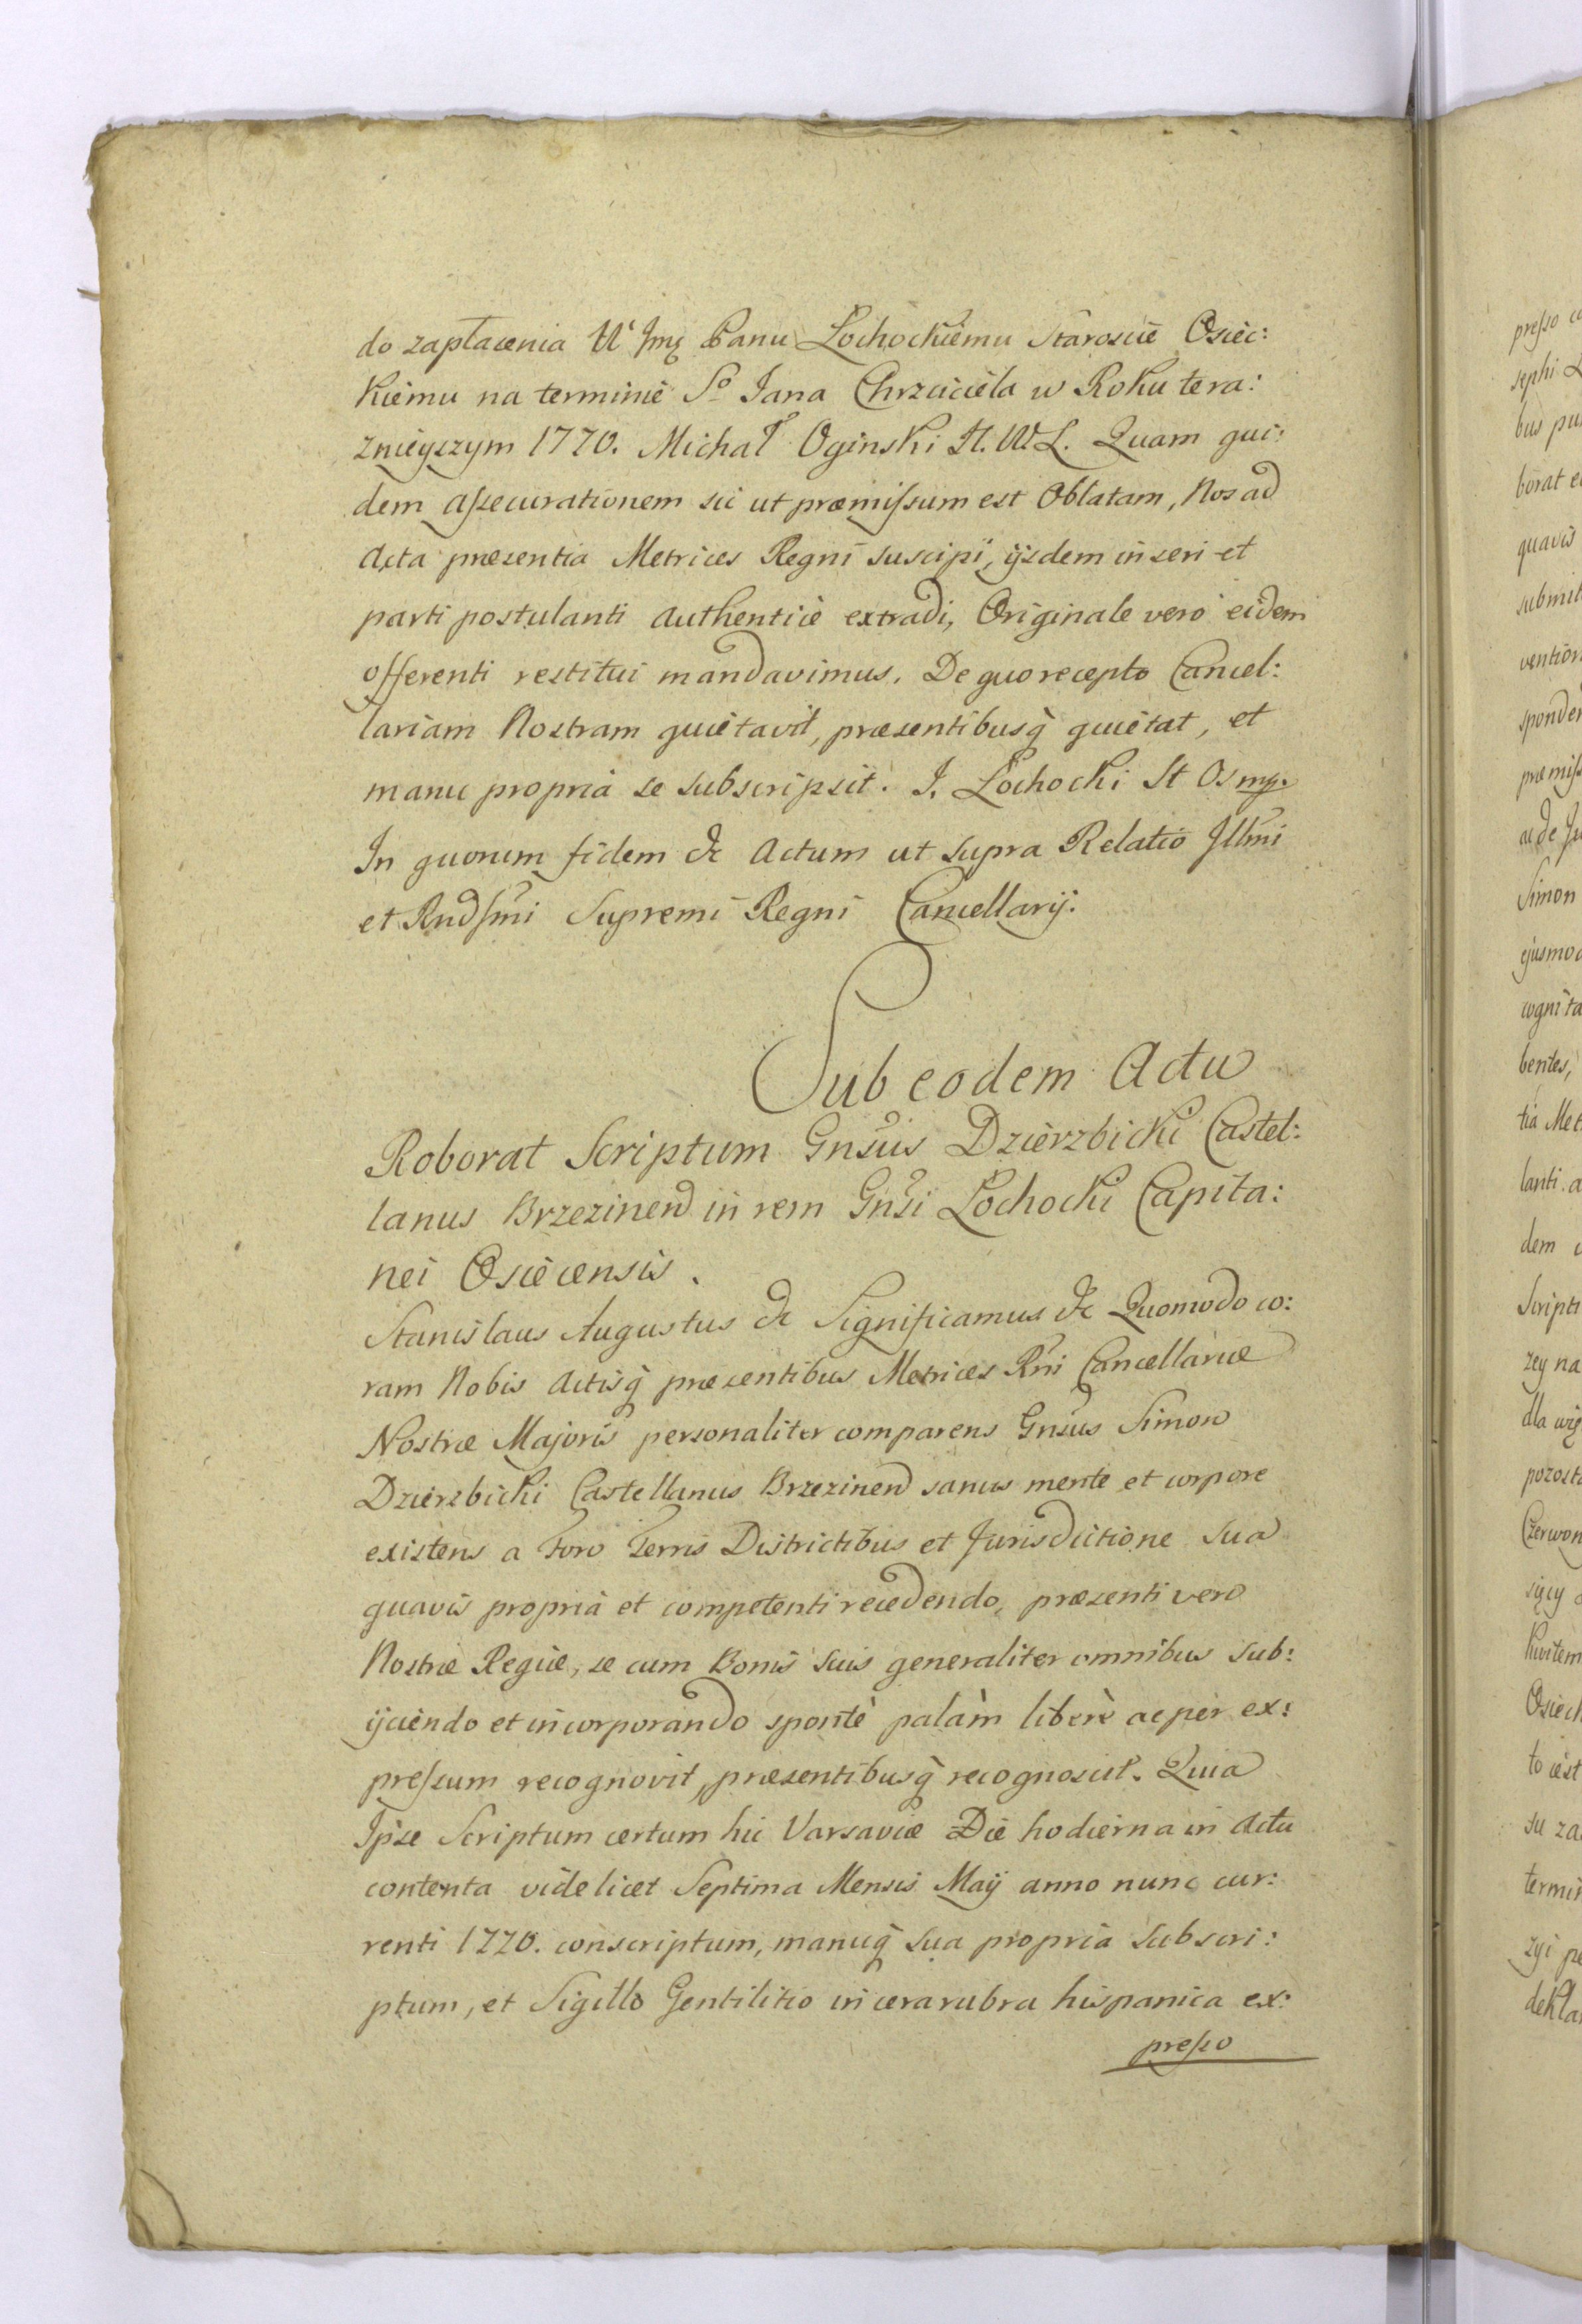 do zapłacenia W Jmę Panu Łochockiemu Staroscie Osiec:
kiemu na terminie So Jana Chrzciciela w Roku tera:
znieyszym 1770. Michał Oginski H. W. L. Quam qui:
dem aſsecurationem sic ut præmiſsum est Oblatam, Nos ad
Acta præsentia Metrices Regni suscipi, ijsdem inseri et
parti postulanti authenticè extradi, Originale verò eidem
offerenti restitui mandavimus. De quo recepto Cancel:
lariam Nostram quietavit, præsentibusq̀ quietat, et
manu propria se subscripsit. J. Łochocki St Os mp.
In quorum fidem &c Actum ut supra Relatio Jllmi
et Rndſmi Supremi Regni Cancellarij.
Sub eodem Actu
Roborat Scriptum Gnsus Dzierzbicki Castel:
lanus Brzezinen in rem Gnsi Łochocki Capita:
nei Osiecensis.
Stanislaus Augustus &c Significamus &c Quomodo co:
ram Nobis Actisq̀ præsentibus Metrices Rni Cancellariæ
Nostræ Majoris personaliter comparens Gnsus Simon
Dzierzbicki Castellanus Brzezinen sanus mente et corpore
existens a Foro Terris Districtibus et Jurisdictione sua
quavis propria et competenti recedendo, præsenti vero
Nostræ Regiæ, se cum Bonis suis generaliter omnibus sub:
ijciendo et incorporando spontè palàm liberè ac per ex:
preſsum recognovit, præsentibusq̀ recognoscit. Quia
Ipse Scriptum certum hic Varsaviæ Die hodierna in Actu
contenta videlicet Septima Mensis Maij anno nunc cur:
renti 1770. conscriptum, manuq̀ sua propria subscri:
ptum, et Sigillo Gentilitio in cera rubra hispanica ex:
preſso
preſso
sephi
bus
borat
quavis
submit
vention
sponden
præmiſs
ac de
Simon
ejusmod
cognita
bentes,
tia Met
lanti
dem
Scripti
zey na
dla
pozost
Czerwon
Osieck
to iest
su
termin
zyi
dekla